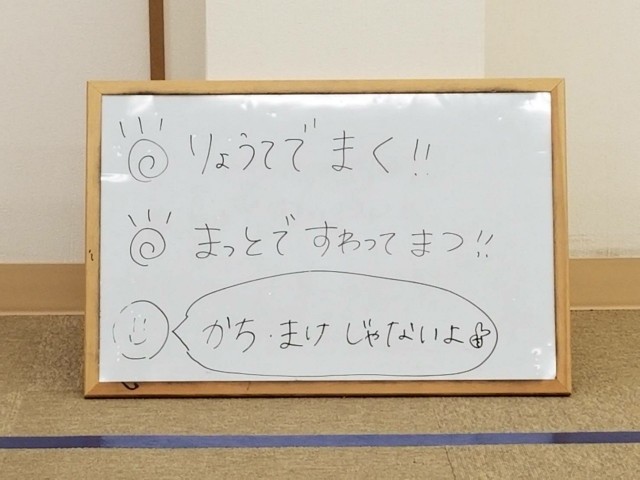 りょうてで まく!!
まっとで すわって まつ!!
かち・まけ じゃないよ